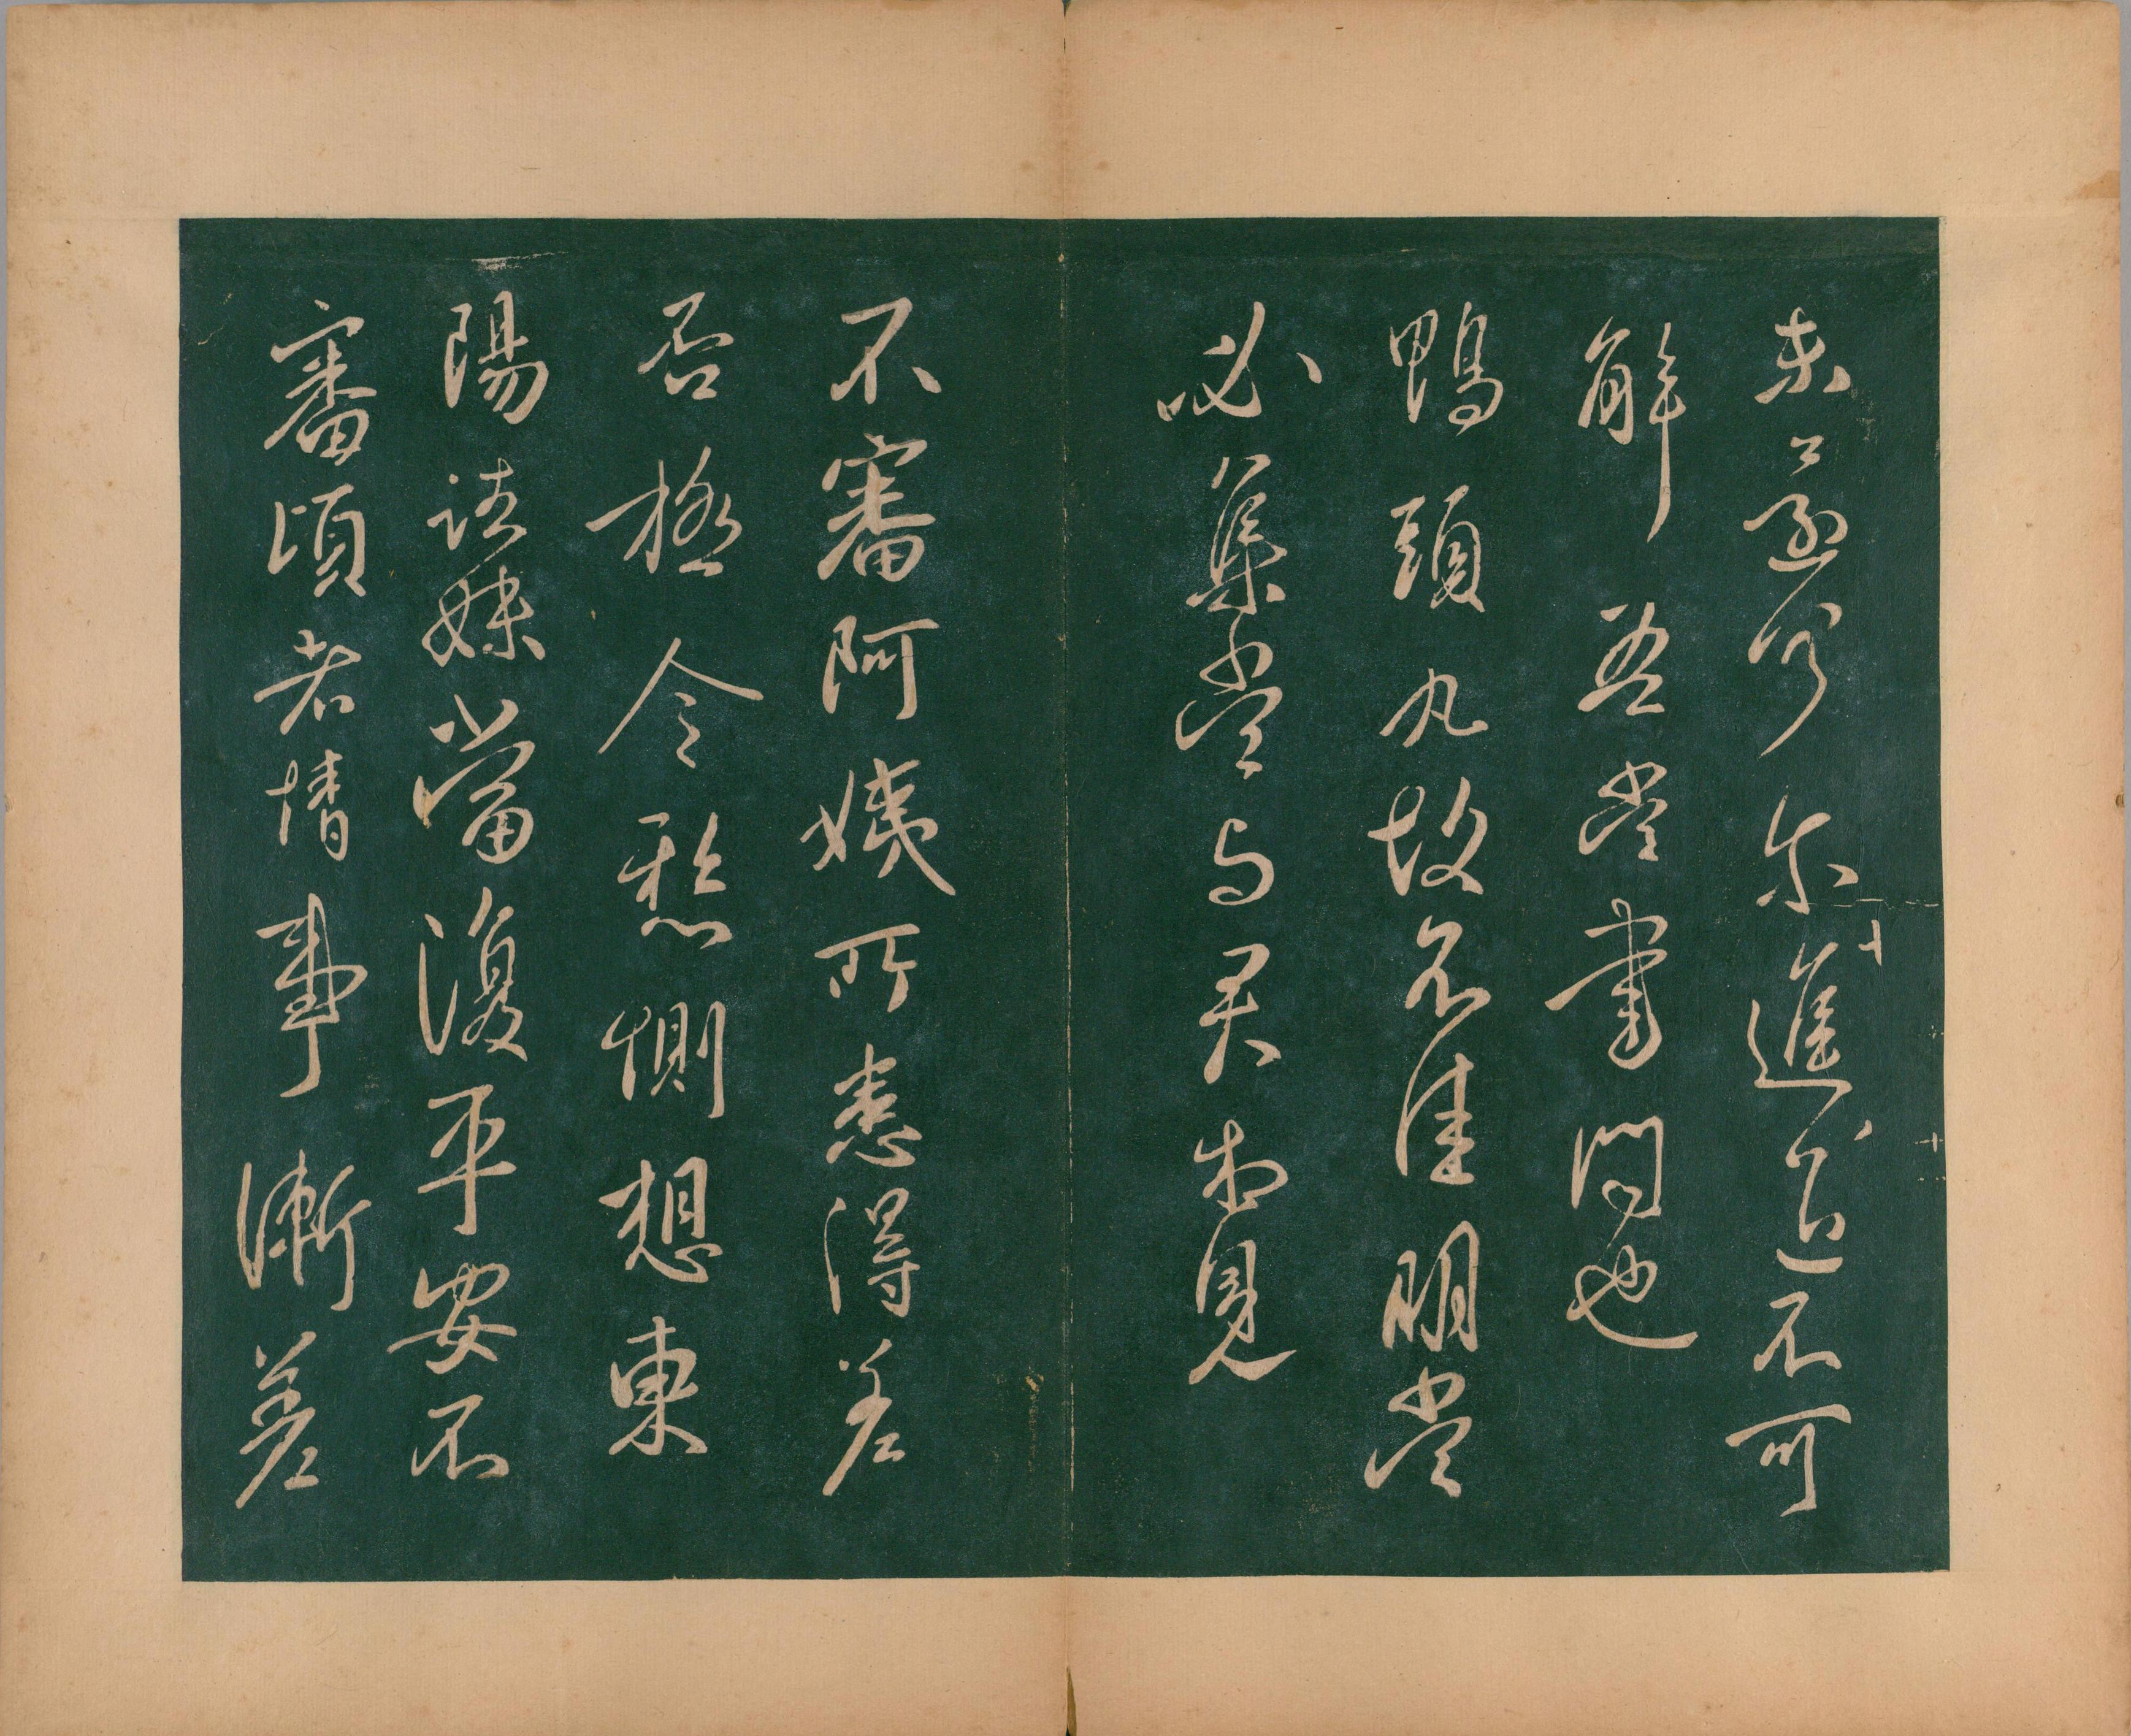 何尔進退不可
解吾當書問也
鴨頭丸故不佳明當
必集當与君相見
不審阿姨所患得差
否極令懸惻想東
陽諸妹當復平安不
審頃者情事漸差